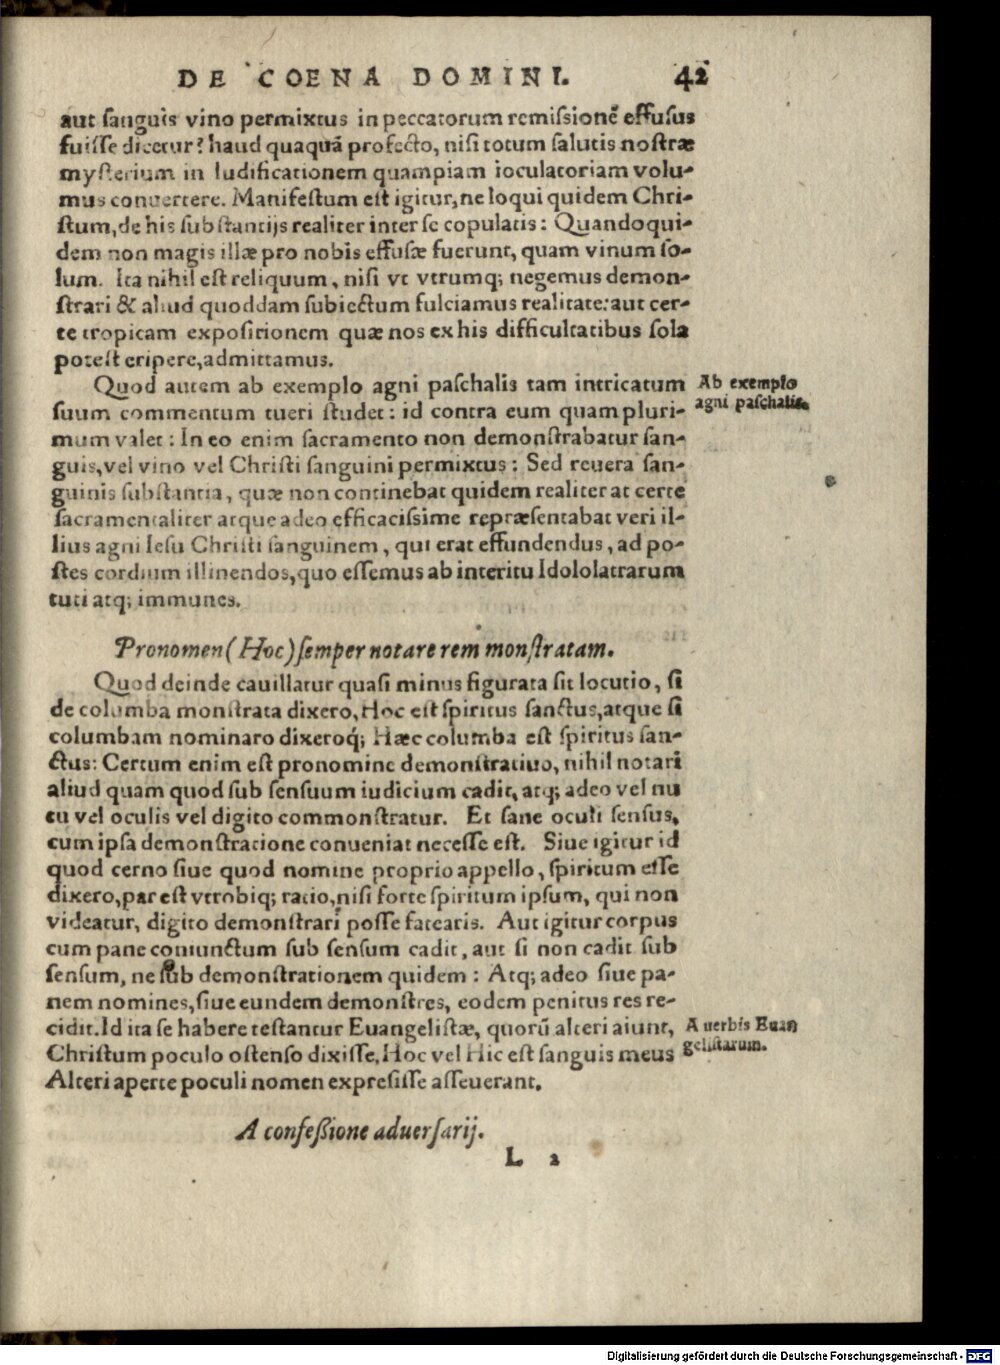 DE COENA DOMINI. 42
aut sanguis vino permixtus in peccatorum remissionẽ effusus
fuisse dicetur? haud quaquã profecto, nisi totum salutis nostræ
mysterium in ludificationem quampiam ioculatoriam volu-
mus conuertere. Manifestum est igitur, ne loqui quidem Chri-
stum, de his substantijs realiter inter se copulatis: Quandoqui-
dem non magis illæ pro nobis effusæ fuerunt, quam vinum so-
lum. Ita nihil est reliquum, nisi vt vtrumq; negemus demon-
strari & aliud quoddam subiectum fulciamus realitate: aut cer-
te tropicam expositionem quæ nos ex his difficultatibus sola
potest eripere, admittamus.
Quod autem ab exemplo agni paschalis tam intricatum
Ab exemplo
suum commentum tueri studet: id contra eum quam pluri-
agni paschalis.
mum valet: In eo enim sacramento non demonstrabatur san-
guis, vel vino vel Christi sanguini permixtus: Sed reuera san-
guinis substantia, quæ non continebat quidem realiter at certe
sacramentaliter atque adeo efficacissime repræsentabat veri il-
lius agni Iesu Christi sanguinem, qui erat effundendus, ad po-
stes cordium illinendos, quo essemus ab interitu Idololatrarum
tuti atq; immunes.
Pronomen (Hoc) semper notare rem monstratam.
Quod deinde cauillatur quasi minus figurata sit locutio, si
de columba monstrata dixero, Hoc est spiritus sanctus, atque si
columbam nominaro dixeroq́; Hæc columba est spiritus san-
ctus: Certum enim est pronomine demonstratiuo, nihil notari
aliud quam quod sub sensuum iudicium cadit, atq; adeo vel nu
tu vel oculis vel digito commonstratur. Et sane oculi sensus,
cum ipsa demonstratione conueniat necesse est. Siue igitur id
quod cerno siue quod nomine proprio appello, spiritum esse
dixero, par est vtrobiq; ratio, nisi forte spiritum ipsum, qui non
videatur, digito demonstrari posse fatearis. Aut igitur corpus
cum pane coniunctum sub sensum cadit, aut si non cadit sub
sensum, ne sub demonstrationem quidem: Atq; adeo siue pa-
nem nomines, siue eundem demonstres, eodem penitus res re-
cidit. Id ita se habere testantur Euangelistæ, quorũ alteri aiunt,
A uerbis Euan
Christum poculo ostenso dixisse, Hoc vel Hic est sanguis meus
gelistarum.
Alteri aperte poculi nomen expresisse asseuerant.
A confeßione aduersarij.
L 2
Digitalisierung gefördert durch die Deutsche Forschungsgemeinschaft - DFG